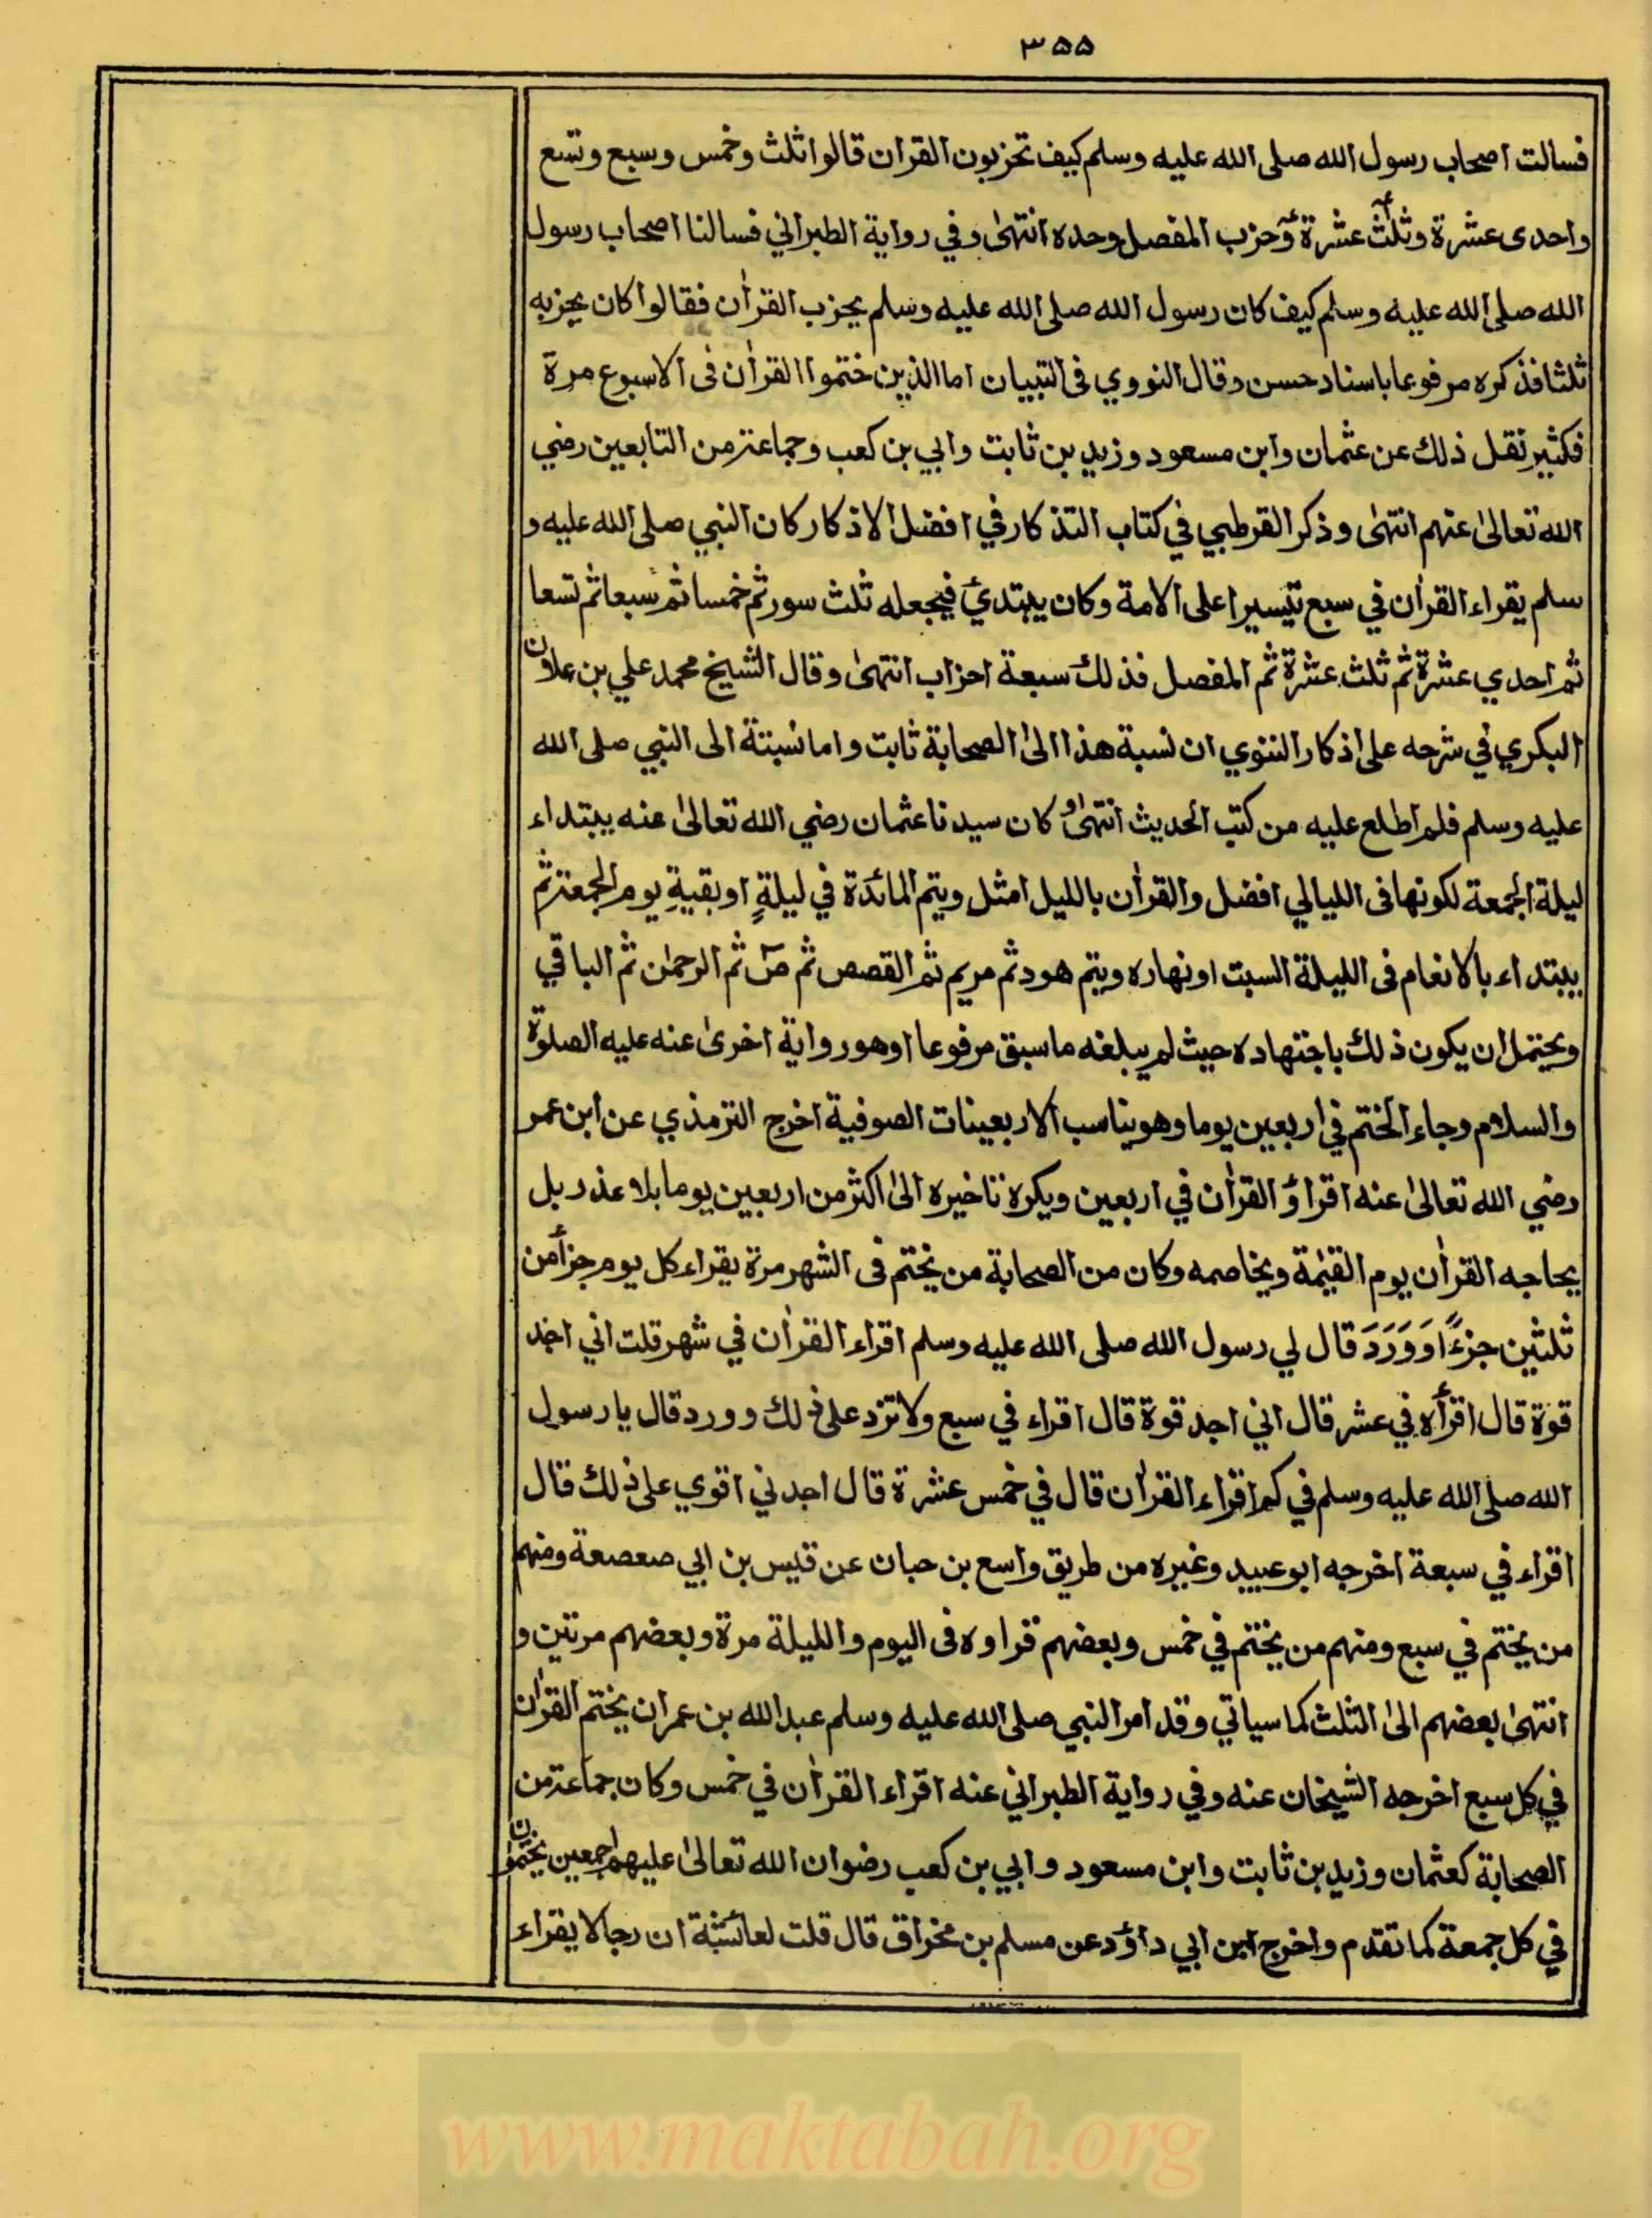 ۳۵۵
فسالت اصحاب رسول الله صلى الله عليه وسلم كيف تحزبون القران قالوا ثلث وخمس وسبع وتسع
واحدى عشرة وثلث عشرة وحزب المفصل وحده انتهىٰ وفي رواية الطبراني فسالنا اصحاب رسول
الله صلى الله عليه وسلم كيف كان رسول الله صلى الله عليه وسلم يحزب القرأن فقالوا كان يحزبه
ثلثا فذكره مرفوعا باسناد حسن وقال النووي فى التبيان اما الذين ختموا القرأن فى الاسبوع مرة
فكثير نقل ذلك عن عثمان وابن مسعود وزيد بن ثابت وابي بن كعب وجماعة من التابعين رضي
الله تعالىٰ عنهم انتهىٰ وذكر القرطبي في كتاب التذكار في افضل الاذكار كان النبي صلى الله عليه و
سلم يقراء القرأن في سبع تيسيرا على الامة وكان يبتدئ فيجعله ثلث سور ثم خمسا ثم سبعا ثم تسعا
ثم احدي عشرة ثم ثلث عشرة ثم المفصل فذلك سبعة احزاب انتهىٰ وقال الشيخ محمد علي بن علان
البكري في شرحه على اذكار النووي ان نسبة هذا الىٰ الصحابة ثابت واما نسبتة الى النبي صلى الله
عليه وسلم فلم اطلع عليه من كتب الحديث انتهىٰ وكان سيدنا عثمان رضي الله تعالىٰ عنه يبتداء
ليلة الجمعة لكونها فى الليالي افضل والقرأن بالليل امثل ويتم المائدة في ليلةٍ او بقيةِ يوم الجمعة ثم
يبتداء بالانعام فى الليلة السبت او نهاره ويتم هود ثم مريم ثم القصص ثم صٓ ثم الرحمٰن ثم الباقي
ويحتمل ان يكون ذلك باجتهاده حيث لم يبلغه ما سبق مرفوعا او هو رواية اخرىٰ عنه عليه الصلوة
والسلام وجاء الختم في اربعين يوما وهو يناسب الاربعينات الصوفية اخرج الترمذي عن ابن عمر
رضي الله تعالىٰ عنه اقراؤ القرأن في اربعين ويكره تاخيره الىٰ اكثر من اربعين يوما بلا عذر بل
يحاجه القرأن يوم القيٰمة ويخاصمه وكان من الصحابة من يختم فى الشهر مرة يقراء كل يوم جزأ من
ثلثين جزءًا وَوَرَدَ قال لي رسول الله صلى الله عليه وسلم اقراء القرأن في شهر قلت اني اجد
قوة قال اقرأه في عشر قال اني اجد قوة قال اقراء في سبع ولا تزد على ذلك وورد قال يا رسول
الله صلى الله عليه وسلم في كم اقراء القرأن قال في خمس عشرة قال اجدني اقوي على ذلك قال
اقراء في سبعة اخرجه ابو عبيد وغيره من طريق واسع بن حبان عن قيس بن ابي صعصعة ومنهم
من يختم في سبع ومنهم من يختم في خمس وبعضهم قراوه فى اليوم والليلة مرة وبعضهم مرتين و
انتهىٰ بعضهم الىٰ الثلث كما سياتي وقد امر النبي صلى الله عليه وسلم عبد الله بن عمر ان يختم القرأن
في كل سبع اخرجه الشيخان عنه وفي رواية الطبراني عنه اقراء القرأن في خمس وكان جماعة من
الصحابة كعثمان وزيد بن ثابت وابن مسعود وابي بن كعب رضوان الله تعالىٰ عليهم اجمعين يختمون
في كل جمعة كما تقدم واخرج ابن ابي داؤد عن مسلم بن مخراق قال قلت لعائشة ان رجالا يقراء
www.maktabah.org